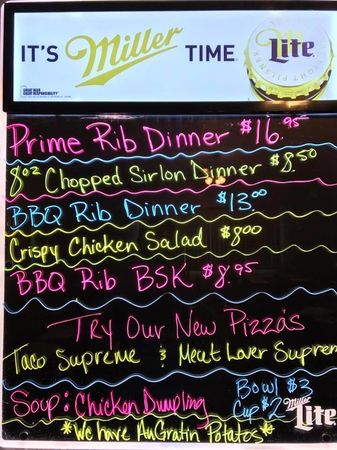 IT'S Miller TIME
Lite
GREAT BEER
GREAT RESPONSIBILITY
Prime Rib Dinner $16.95
8oz Chopped Sirlon Dinner $8.50
BBQ Rib Dinner $13.00
Crispy Chicken Salad $8.00
BBQ Rib BSK $8.95
Try Our New Pizza's
Taco Supreme & Meat Lover Suprem
Soup: Chicken Dumpling
Bowl $3
Cup $2
Miller Lite
*We have AuGratin Potatos*